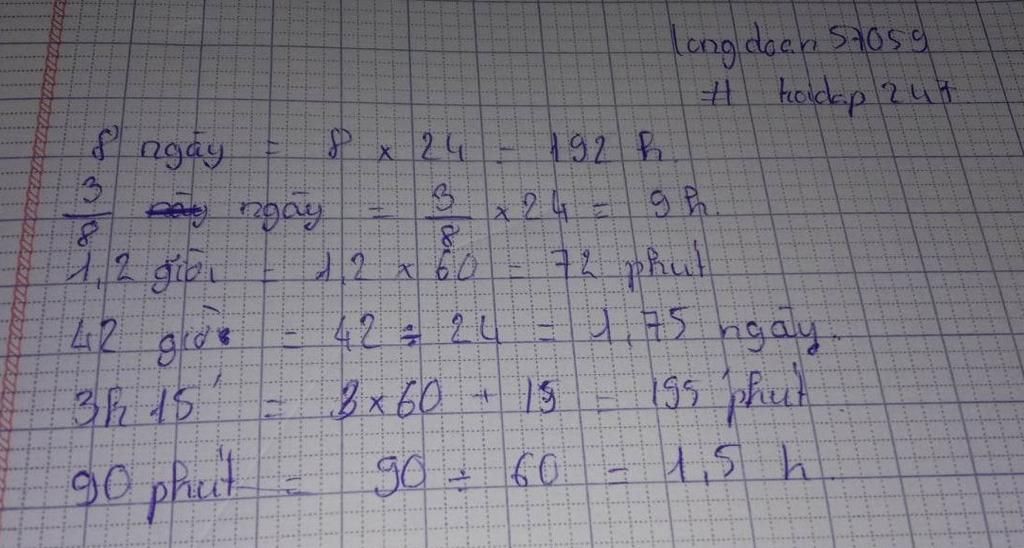 longdoan 57059
# hoidap 247
8 ngày = 8 × 24 = 192 h
3/8 ngày = 3/8 × 24 = 9 h.
1,2 giờ = 1,2 × 60 = 72 phút
42 giờ = 42 ÷ 24 = 1,75 ngày.
3h 15' = 3 × 60 + 15 = 195 phút
90 phút = 90 ÷ 60 = 1,5 h